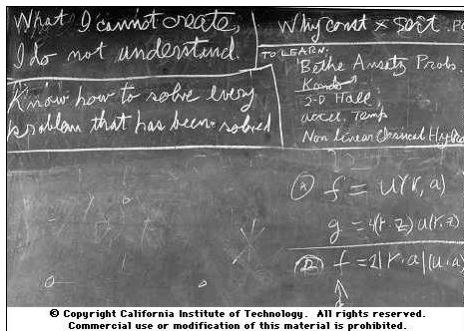 What I cannot create,
I do not understand.
Know how to solve every
problem that has been solved
Why const × sort. Po
TO LEARN:
Bethe Ansatz Probs.
Kondo
2-D Hall
accel. Temp
Non Linear Classical Hydro
Ⓐ f = u(r, a)
g = 4(r·z) u(r, z)
f = 2|r·a|(u·a)
© Copyright California Institute of Technology. All rights reserved.
Commercial use or modification of this material is prohibited.